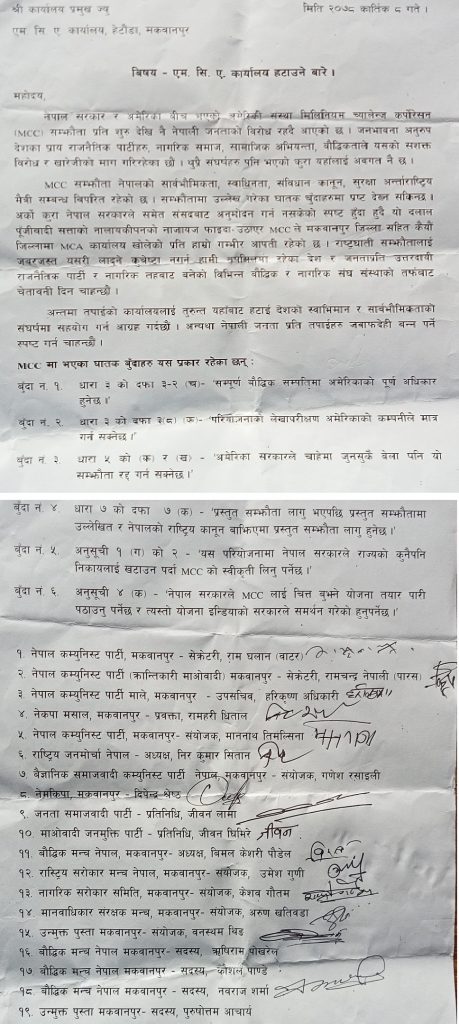 श्री कार्यालय प्रमुख ज्यु मिति २०७८ कार्तिक ८ गते ।
एम. सि ए. कार्यालय, हेटौडा, मकवानपुर
बिषय - एम. सि. ए. कार्यालय हटाउने बारे ।
महोदय,
नेपाल सरकार र अमेरिका बीच भएको अमेरिकी संस्था मिलिनियम च्यालेन्ज कर्पोरेसन
(MCC) सम्झौता प्रति शुरु देखि नै नेपाली जनताको विरोध रहदै आएको छ । जनभावना अनुरुप
देशका प्राय राजनैतिक पार्टीहरु, नागरिक समाज, सामाजिक अभियन्ता, बौद्धिकताले यसको सशक्त
विरोध र खारेजीको माग गरिरहेका छौ । थुप्रै संघर्षहरु पनि भएको कुरा यहाँलाई अवगत नै छ ।
MCC सम्झौता नेपालको सार्वभौमिकता, स्वाधिनता, संविधान कानून, सुरक्षा अर्न्ताराष्ट्रिय
मैत्री सम्बन्ध बिपरित रहेको छ । सम्झौतामा उल्लेख गरेका घातक बुँदाहरुमा प्रष्ट देख्न सकिन्छ ।
अर्को कुरा नेपाल सरकारले समेत संसदबाट अनुमोदन गर्न नसकेको स्पष्ट हुँदा हुदै यो दलाल
पूंजीवादी सत्ताको नालायकीपनको नाजायज फाइदा उठाएर MCC ले मकवानपुर जिल्ला सहित कैयौ
जिल्लामा MCA कार्यालय खोलेको प्रति हाम्रो गम्भीर आपती रहेको छ । राष्ट्रघाती सम्झौतालाई
जबरजस्त यसरी लाद्ने कुचेष्टा नगर्न हामी देश र जनताप्रति उत्तरदायी
राजनैतिक पार्टी र नागरिक तहबाट बनेको विभिन्न बौद्धिक र नागरिक संघ संस्थाको तर्फबाट
चेतावनी दिन चाहन्छौ ।
अन्तमा तपाईको कार्यालयलाई तुरुन्त यहाँबाट हटाई देशको स्वाभिमान र सार्वभौमिकताको
संघर्षमा सहयोग गर्न आग्रह गर्दछौ । अन्यथा नेपाली जनता प्रति तपाईहरु जबाफदेही बन्न पर्ने
स्पष्ट गर्न चाहन्छौ ।
MCC मा भएका घातक बुँदाहरु यस प्रकार रहेका छन् :
बुँदा नं. १. धारा ३ को दफा ३-२ (च)- 'सम्पूर्ण बौद्धिक सम्पतिमा अमेरिकाको पूर्ण अधिकार
हुनेछ ।'
बुँदा नं. २. धारा ३ को दफा ३(८) (क)- 'परियोजनाको लेखापरीक्षण अमेरिकाको कम्पनीले मात्र
गर्न सक्नेछ ।'
बुँदा नं. ३. धारा ५ को (क) र (ख) - 'अमेरिका सरकारले चाहेमा जुनसुकै बेला पनि यो
सम्झौता रद्द गर्न सक्नेछ ।'
बुँदा नं. ४. धारा ७ को दफा ७ (क) - 'प्रस्तुत् सम्झौता लागु भएपछि प्रस्तुत सम्झौतामा
उल्लेखित र नेपालको राष्ट्रिय कानून बाझिएमा प्रस्तुत सम्झौता लागु हुनेछ ।'
बुँदा नं. ५. अनुसूची १ (ग) को २ - 'यस परियोजनामा नेपाल सरकारले राज्यको कुनैपनि
निकायलाई खटाउन पर्दा MCC को स्वीकृती लिनु पर्नेछ ।'
बुँदा नं. ६. अनुसूची ४ (क) - 'नेपाल सरकारले MCC लाई चित्त बुझ्ने योजना तयार पारी
पठाउनु पर्नेछ र त्यस्तो योजना इन्डियाको सरकारले समर्थन गरेको हुनुपर्नेछ ।'
१. नेपाल कम्युनिस्ट पार्टी, मकवानपुर - सेक्रेटरी, राम घलान (वाटर)
२. नेपाल कम्युनिस्ट पार्टी (क्रान्तिकारी माओवादी) मकवानपुर - सेक्रेटरी, रामचन्द्र नेपाली (पारस)
३. नेपाल कम्युनिस्ट पार्टी माले, मकवानपुर - उपसचिव, हरिकृष्ण अधिकारी
४. नेकपा मसाल, मकवानपुर - प्रवक्ता, रामहरी धिताल
५. नेपाल कम्युनिस्ट पार्टी, मकवानपुर- संयोजक, माननाथ तिमल्सिना
६. राष्ट्रिय जनमोर्चा नेपाल - अध्यक्ष, निर कुमार सितान
७. बैज्ञानिक समाजवादी कम्युनिस्ट पार्टी नेपाल, मकवानपुर - संयोजक, गणेश रसाइली
८. नेमकिपा, मकवानपुर - दिपेन्द्र श्रेष्ठ
९. जनता समाजवादी पार्टी - प्रतिनिधि, जीवन लामा
१०. माओवादी जनमुक्ति पार्टी - प्रतिनिधि, जीवन घिमिरे जीवन
११. बौद्धिक मन्च नेपाल, मकवानपुर- अध्यक्ष, विमल केशरी पौडेल
१२. राष्ट्रिय सरोकार मन्च नेपाल, मकवानपुर- संयोजक, उमेश गुणी
१३. नागरिक सरोकार समिति, मकवानपुर - संयोजक, केशव गौतम
१४. मानवाधिकार संरक्षक मन्च, मकवानपुर- संयोजक, अरुण खतिवडा
१५. उन्मुक्त पुस्ता मकवानपुर - संयोजक, वनस्थम बिड
१६. बौद्धिक मन्च नेपाल मकवानपुर - सदस्य, ऋषिराम पोखरेल
१७. बौद्धिक मन्च नेपाल मकवानपुर - सदस्य, कौशल पाण्डे
१८. बौद्धिक मन्च नेपाल मकवानपुर - सदस्य, नवराज शर्मा
१९. उन्मुक्त पुस्ता मकवानपुर- सदस्य, पुरुषोत्तम आचार्य